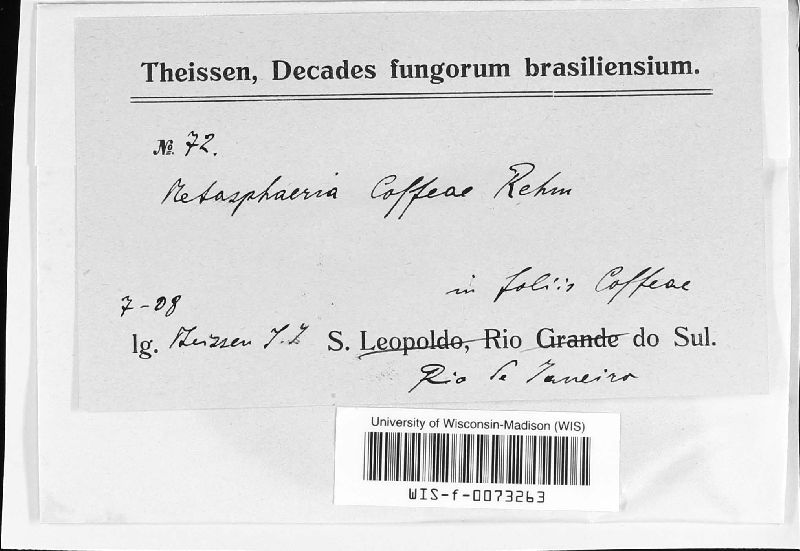 Theissen, Decades fungorum brasiliensium.
№ 72.
Metasphaeria Coffeae Rehm
in foliis Coffeae
7-08
lg. Theissen S.J. S. Leopoldo, Rio Grande do Sul.
Rio de Janeiro
University of Wisconsin-Madison (WIS)
WIS-f-0073263